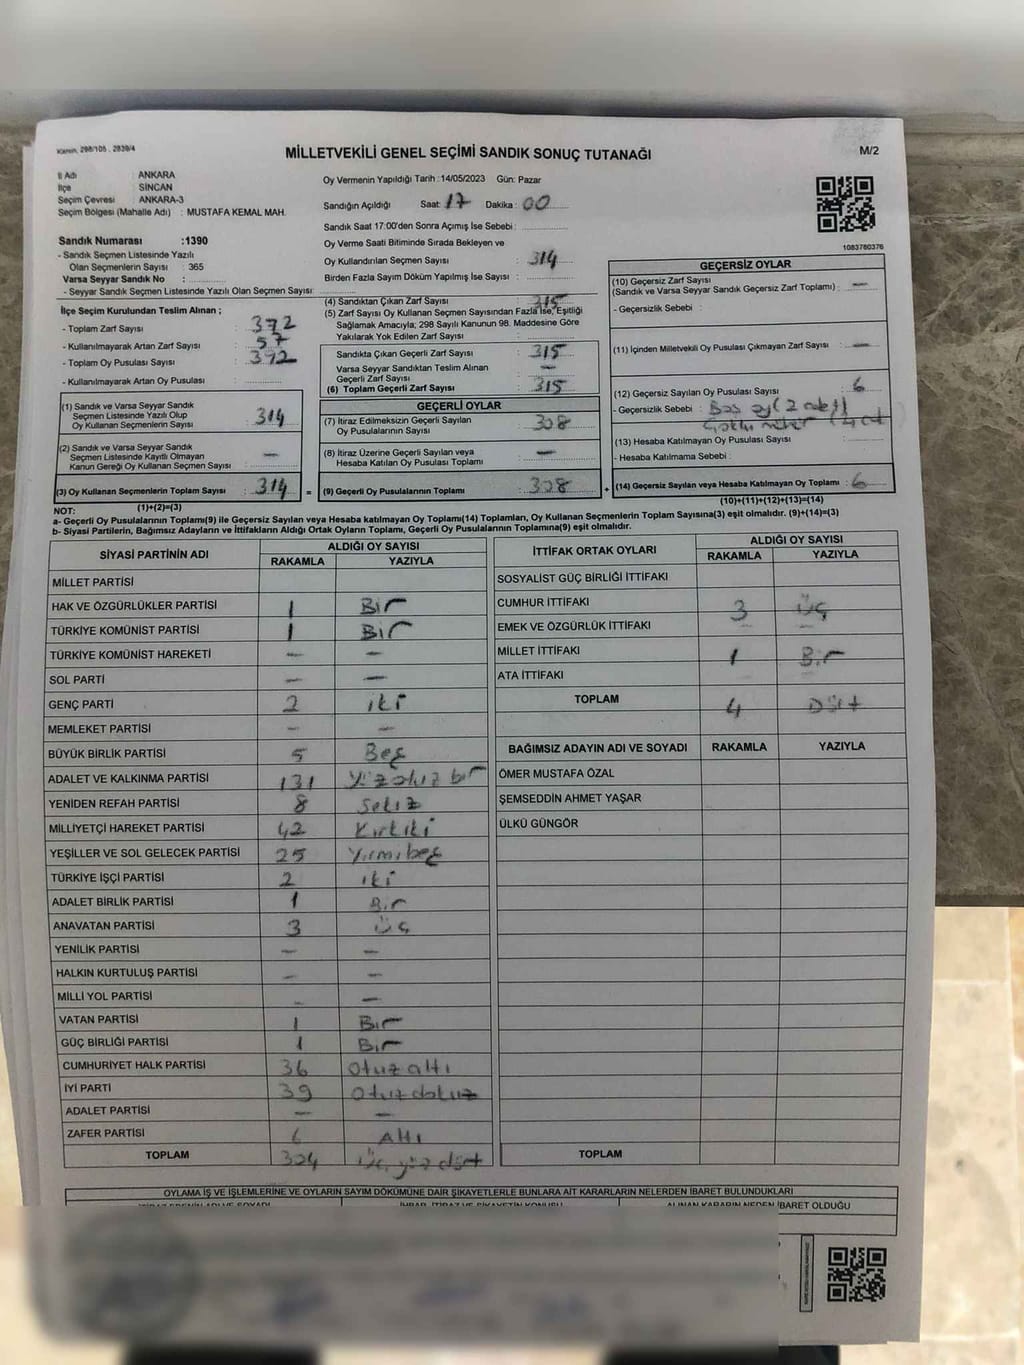 Kanun, 298/105 , 2839/4
MİLLETVEKİLİ GENEL SEÇİMİ SANDIK SONUÇ TUTANAĞI
M/2
İl Adı : ANKARA
İlçe : SİNCAN
Seçim Çevresi : ANKARA-3
Seçim Bölgesi (Mahalle Adı) : MUSTAFA KEMAL MAH.
Oy Vermenin Yapıldığı Tarih :14/05/2023 Gün: Pazar
Sandığın Açıldığı Saat: 17 Dakika : 00
Sandık Saat 17:00'den Sonra Açımış İse Sebebi :
Oy Verme Saati Bitiminde Sırada Bekleyen ve
Oy Kullandırılan Seçmen Sayısı : 314
Birden Fazla Sayım Döküm Yapılmış İse Sayısı :
1083780376
Sandık Numarası :1390
- Sandık Seçmen Listesinde Yazılı
Olan Seçmenlerin Sayısı : 365
Varsa Seyyar Sandık No :
- Seyyar Sandık Seçmen Listesinde Yazılı Olan Seçmen Sayısı:
İlçe Seçim Kurulundan Teslim Alınan ;
- Toplam Zarf Sayısı : 372
- Kullanılmayarak Artan Zarf Sayısı : 57
- Toplam Oy Pusulası Sayısı : 372
- Kullanılmayarak Artan Oy Pusulası :
(1) Sandık ve Varsa Seyyar Sandık
Seçmen Listesinde Yazılı Olup
Oy Kullanan Seçmenlerin Sayısı : 314
(2) Sandık ve Varsa Seyyar Sandık
Seçmen Listesinde Kayıtlı Olmayan
Kanun Gereği Oy Kullanan Seçmen Sayısı : —
(3) Oy Kullanan Seçmenlerin Toplam Sayısı : 314 =
(4) Sandıktan Çıkan Zarf Sayısı : 315
(5) Zarf Sayısı Oy Kullanan Seçmen Sayısından Fazla İse, Eşitliği
Sağlamak Amacıyla; 298 Sayılı Kanunun 98. Maddesine Göre
Yakılarak Yok Edilen Zarf Sayısı :
Sandıkta Çıkan Geçerli Zarf Sayısı : 315
Varsa Seyyar Sandıktan Teslim Alınan
Geçerli Zarf Sayısı : —
(6) Toplam Geçerli Zarf Sayısı : 315
GEÇERLİ OYLAR
(7) İtiraz Edilmeksizin Geçerli Sayılan
Oy Pusulalarının Sayısı : 308
(8) İtiraz Üzerine Geçerli Sayılan veya
Hesaba Katılan Oy Pusulası Toplamı : —
(9) Geçerli Oy Pusulalarının Toplamı : 308 +
GEÇERSİZ OYLAR
(10) Geçersiz Zarf Sayısı
(Sandık ve Varsa Seyyar Sandık Geçersiz Zarf Toplamı) : —
- Geçersizlik Sebebi :
(11) İçinden Milletvekili Oy Pusulası Çıkmayan Zarf Sayısı : —
(12) Geçersiz Sayılan Oy Pusulası Sayısı : 6
- Geçersizlik Sebebi : Boş oy (2 adet)
(13) Hesaba Katılmayan Oy Pusulası Sayısı :
- Hesaba Katılmama Sebebi :
(14) Geçersiz Sayılan veya Hesaba Katılmayan Oy Toplamı : 6
(1)+(2)=(3)
(10)+(11)+(12)+(13)=(14)
NOT:
a- Geçerli Oy Pusulalarının Toplamı(9) ile Geçersiz Sayılan veya Hesaba katılmayan Oy Toplamı(14) Toplamları, Oy Kullanan Seçmenlerin Toplam Sayısına(3) eşit olmalıdır. (9)+(14)=(3)
b- Siyasi Partilerin, Bağımsız Adayların ve İttifakların Aldığı Ortak Oyların Toplamı, Geçerli Oy Pusulalarının Toplamına(9) eşit olmalıdır.
SİYASİ PARTİNİN ADI ALDIĞI OY SAYISI
RAKAMLA YAZIYLA
MİLLET PARTİSİ
HAK VE ÖZGÜRLÜKLER PARTİSİ 1 Bir
TÜRKİYE KOMÜNİST PARTİSİ 1 Bir
TÜRKİYE KOMÜNİST HAREKETİ — —
SOL PARTİ — —
GENÇ PARTİ 2 iki
MEMLEKET PARTİSİ — —
BÜYÜK BİRLİK PARTİSİ 5 Beş
ADALET VE KALKINMA PARTİSİ 131 Yüzotuz bir
YENİDEN REFAH PARTİSİ 8 Sekiz
MİLLİYETÇİ HAREKET PARTİSİ 42 Kırkiki
YEŞİLLER VE SOL GELECEK PARTİSİ 25 Yirmibeş
TÜRKİYE İŞÇİ PARTİSİ 2 iki
ADALET BİRLİK PARTİSİ 1 Bir
ANAVATAN PARTİSİ 3 Üç
YENİLİK PARTİSİ — —
HALKIN KURTULUŞ PARTİSİ — —
MİLLİ YOL PARTİSİ — —
VATAN PARTİSİ 1 Bir
GÜÇ BİRLİĞİ PARTİSİ 1 Bir
CUMHURİYET HALK PARTİSİ 36 Otuz altı
İYİ PARTİ 39 Otuz dokuz
ADALET PARTİSİ — —
ZAFER PARTİSİ 6 Altı
TOPLAM 304 Üç yüz dört
İTTİFAK ORTAK OYLARI ALDIĞI OY SAYISI
RAKAMLA YAZIYLA
SOSYALİST GÜÇ BİRLİĞİ İTTİFAKI
CUMHUR İTTİFAKI 3 Üç
EMEK VE ÖZGÜRLÜK İTTİFAKI — —
MİLLET İTTİFAKI 1 Bir
ATA İTTİFAKI
TOPLAM 4 Dört
BAĞIMSIZ ADAYIN ADI VE SOYADI RAKAMLA YAZIYLA
ÖMER MUSTAFA ÖZAL
ŞEMSEDDİN AHMET YAŞAR
ÜLKÜ GÜNGÖR
TOPLAM
OYLAMA İŞ VE İŞLEMLERİNE VE OYLARIN SAYIM DÖKÜMÜNE DAİR ŞİKAYETLERLE BUNLARA AİT KARARLARIN NELERDEN İBARET BULUNDUKLARI
İHBAR, İTİRAZ VE ŞİKAYETİN KONUSU ALINAN KARARIN NEDEN İBARET OLDUĞU